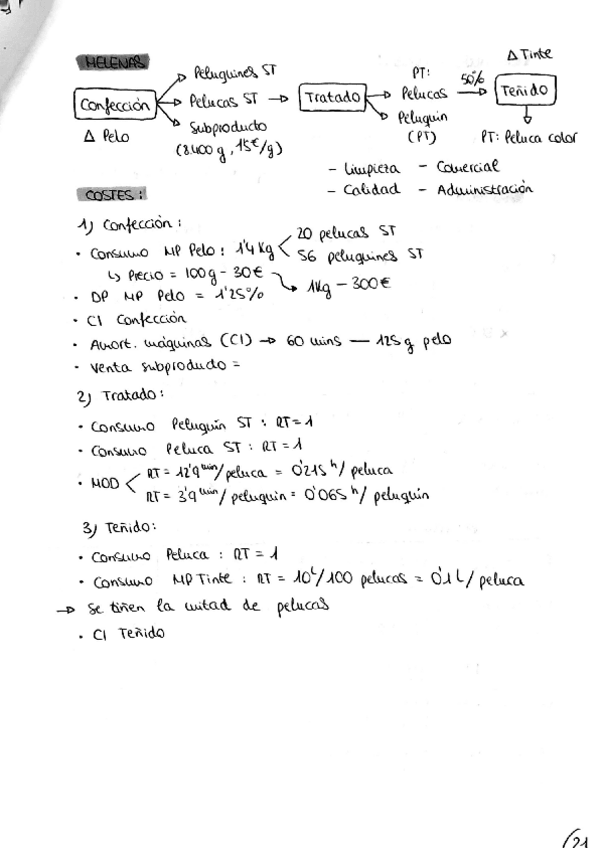 HELENAS
Confección
Δ Pelo
Peluquines ST
Pelucas ST
Subproducto
(8.400 g, 15€/g)
Tratado
PT:
Pelucas
Peluquin
(PT)
50%
Δ Tinte
Teñido
PT: Peluca color
- Limpieza - Comercial
- Calidad - Administración
COSTES:
1) Confección:
• Consumo MP Pelo: 1'4 Kg < 20 pelucas ST
56 peluquines ST
↳ Precio = 100g - 30€ → 1Kg - 300€
• DP MP Pelo = 1'25%
• CI Confección
• Amort. máquinas (CI) → 60 mins — 125 g pelo
• Venta subproducto =
2) Tratado:
• Consumo Peluquín ST: RT = 1
• Consumo Peluca ST: RT = 1
• MOD < RT = 12'9 min/peluca = 0'215 h/peluca
RT = 3'9 min/peluquin = 0'065 h/peluquín
3) Teñido:
• Consumo Peluca: RT = 1
• Consumo MP Tinte: RT = 10 L/100 pelucas = 0'1 L/peluca
→ Se tiñen la mitad de pelucas
• CI Teñido
21